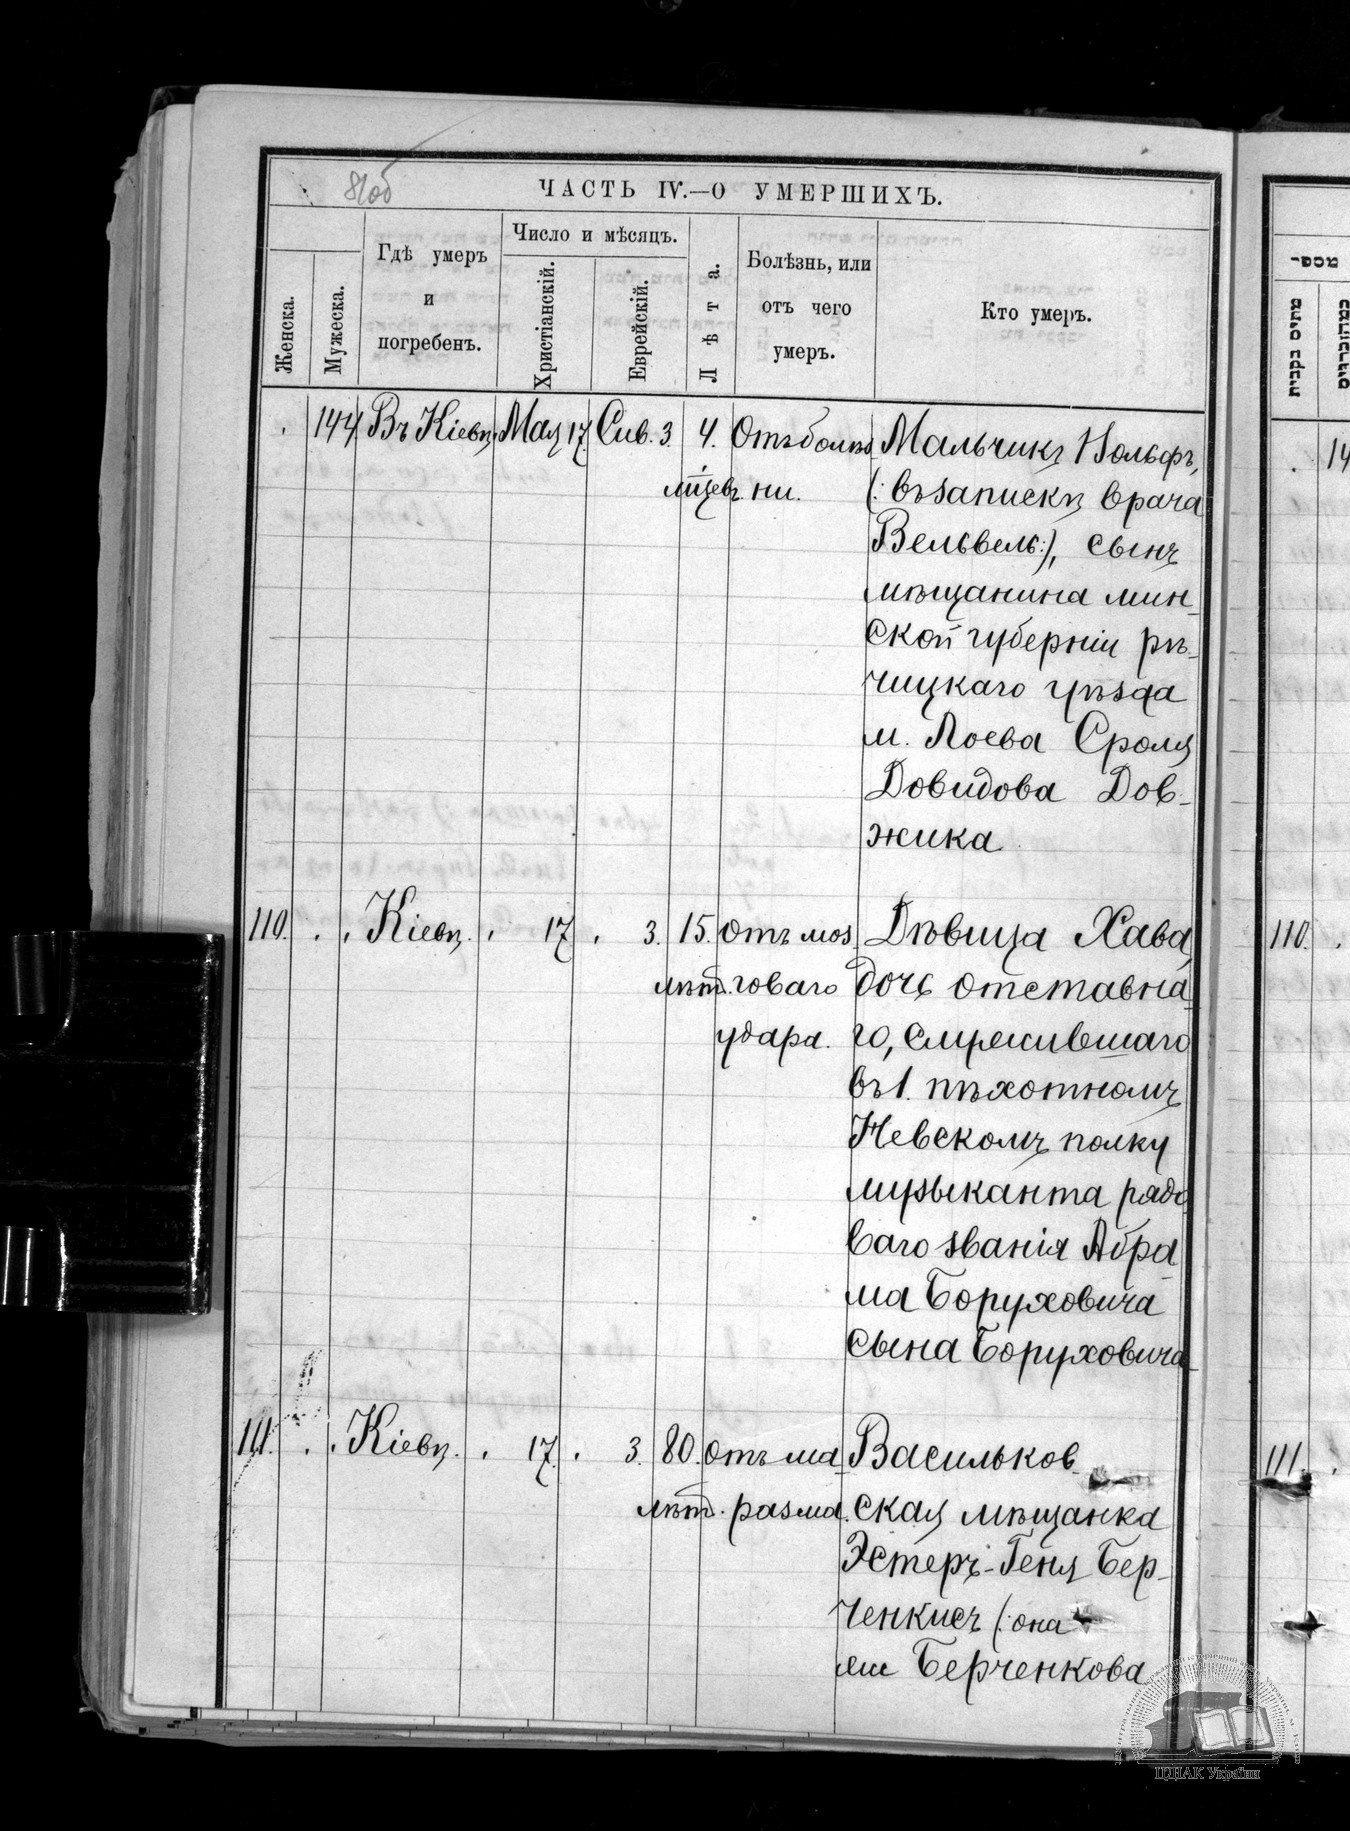 81об
ЧАСТЬ IV.—О УМЕРШИХЪ.
Женска.
Мужеска.
Гдѣ умеръ
и
погребенъ.
Число и мѣсяцъ.
Христіанскій.
Еврейскій.
Лѣта.
Болѣзнь, или
отъ чего
умеръ.
Кто умеръ.
144 Въ Кіевѣ. Мая 17. Сив. 3. 4. Отъ болѣз Мальчикъ Вольфъ,
мѣсяцевъ. ни. (: въ запискѣ врача
Вельвель:), сынъ
мѣщанина мин-
ской губерніи рѣ-
чицкаго уѣзда
м. Лоева Сроля
Довидова Дов-
жика
110. Кіевѣ. 17 3. 15. отъ моз- Дѣвица Хава,
лѣт. говаго дочь отставна-
удара. го, служившаго
въ 1. пѣхотномъ
Невскомъ полку
музыканта рядо-
ваго званія Абра-
ма Боруховича
сына Боруховича
111. Кіевѣ. 17. 3. 80. отъ ма- Васильков-
лѣт. разма. ская мѣщанка
Эстеръ-Геня Бер-
ченкисъ (: она
же Берченкова
110.
111.
ЦДІАК України